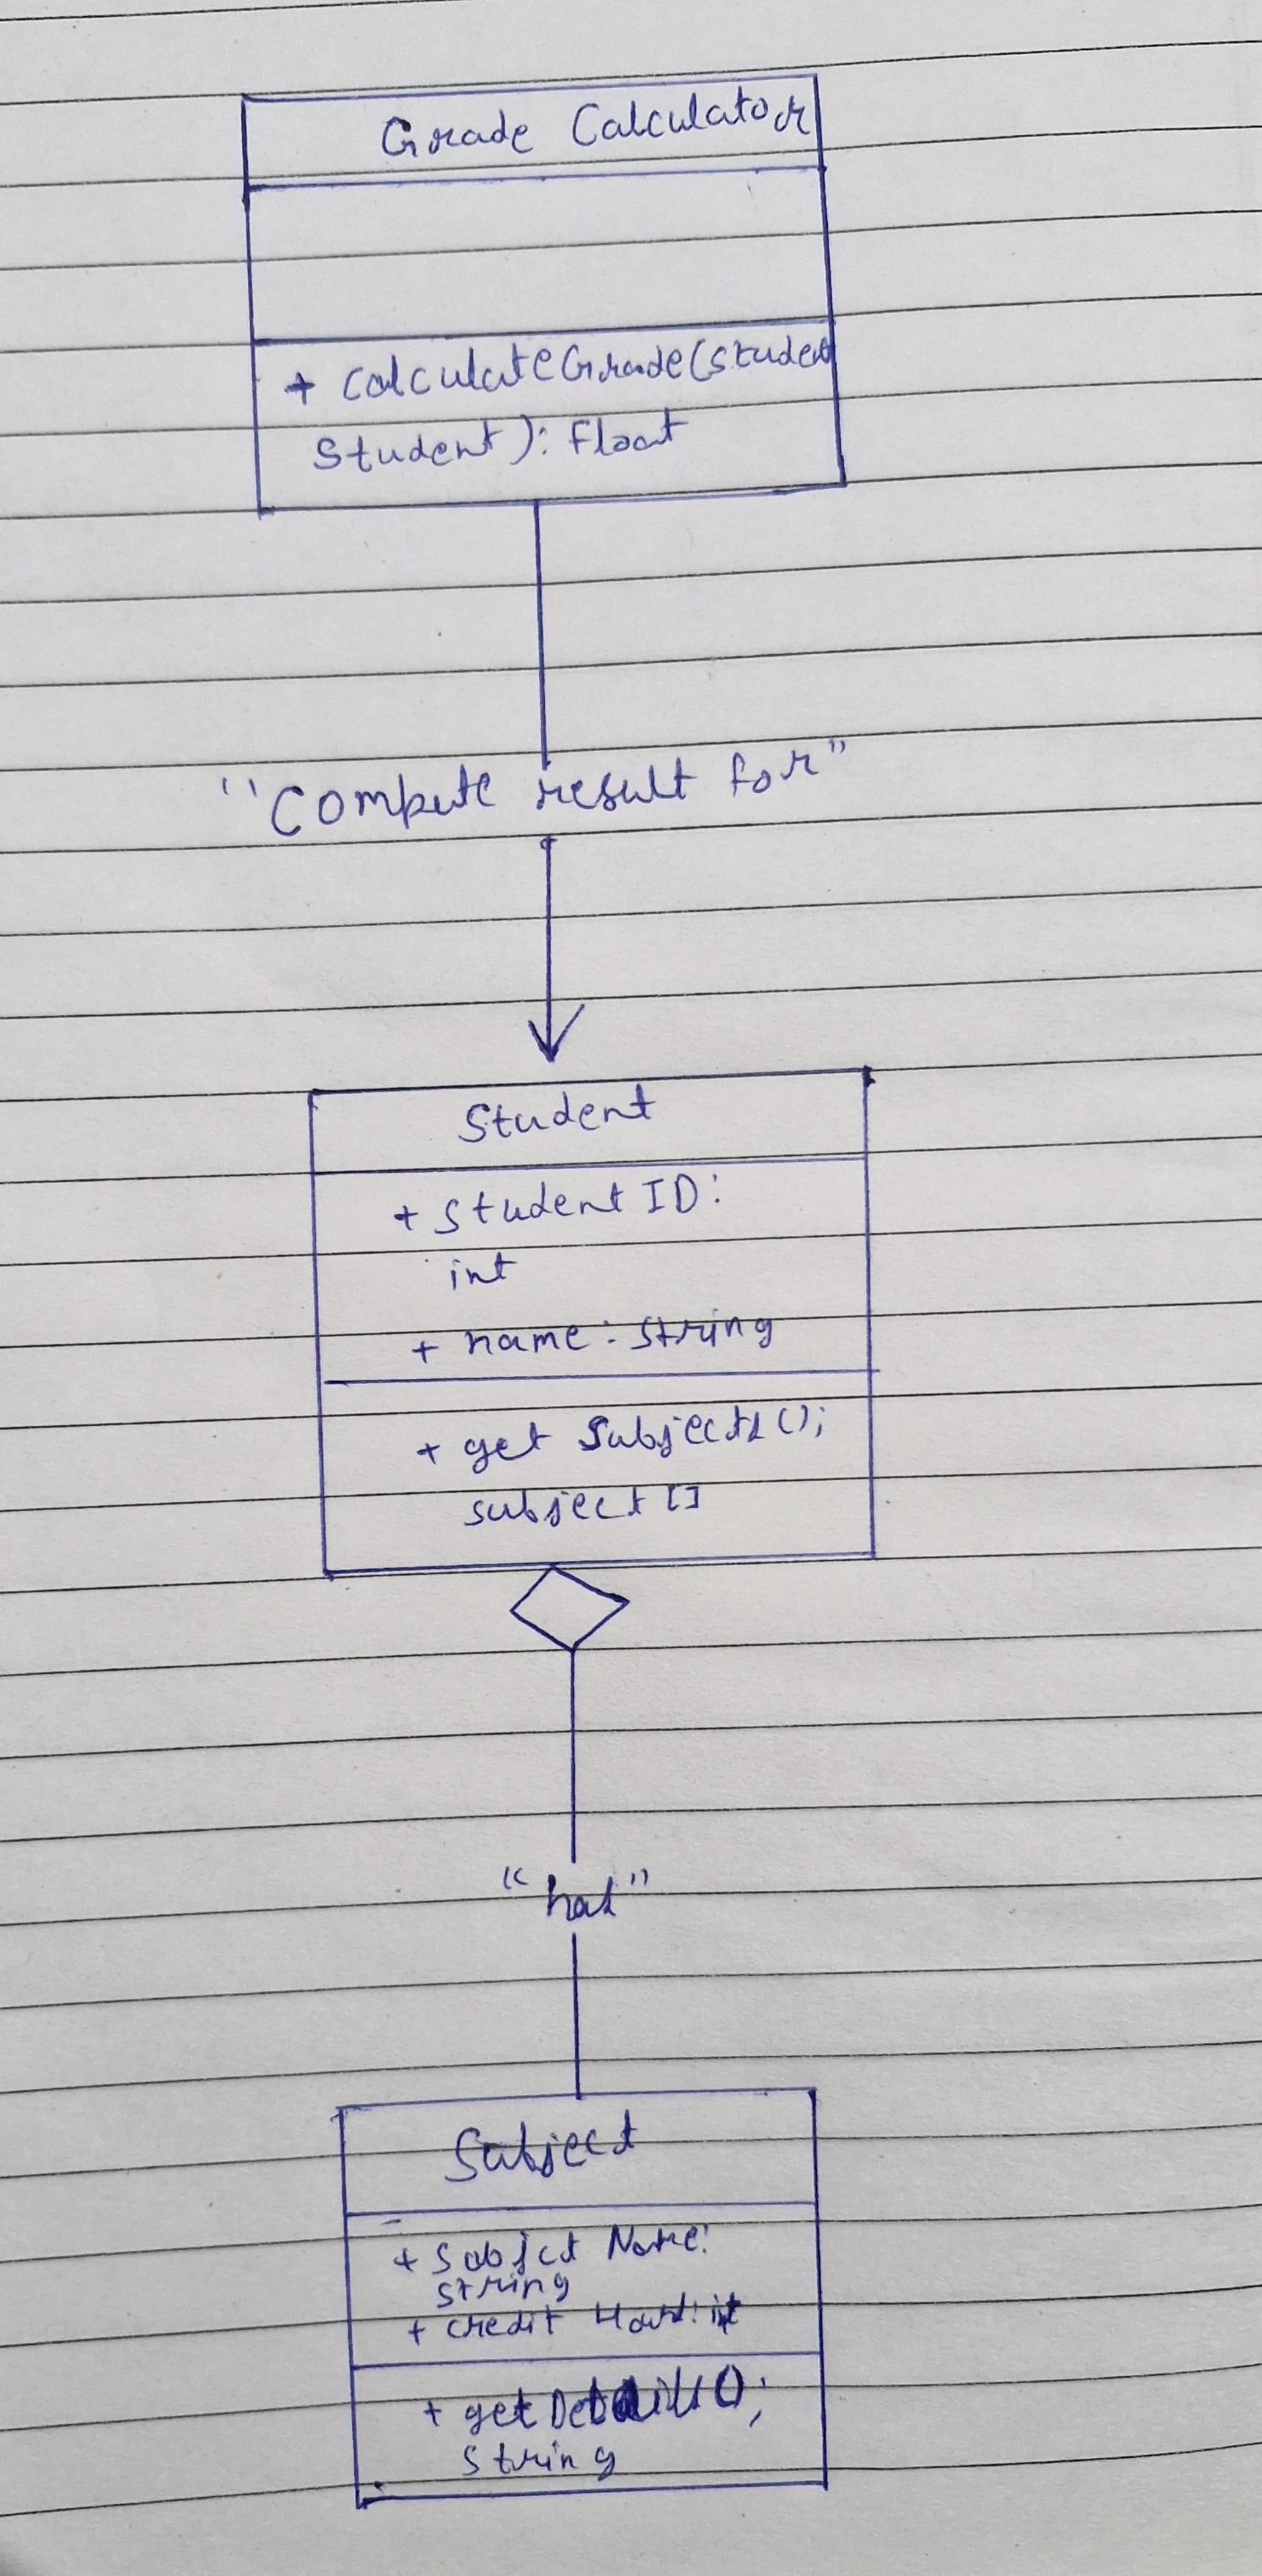 Grade Calculator
+ calculateGrade(student
Student): Float
"Compute result for"
Student
+ studentID:
int
+ name: string
+ get Subjects();
subject []
"has"
Subject
+ Subjct Name:
string
+ credit Hours: int
+ getDetails();
string